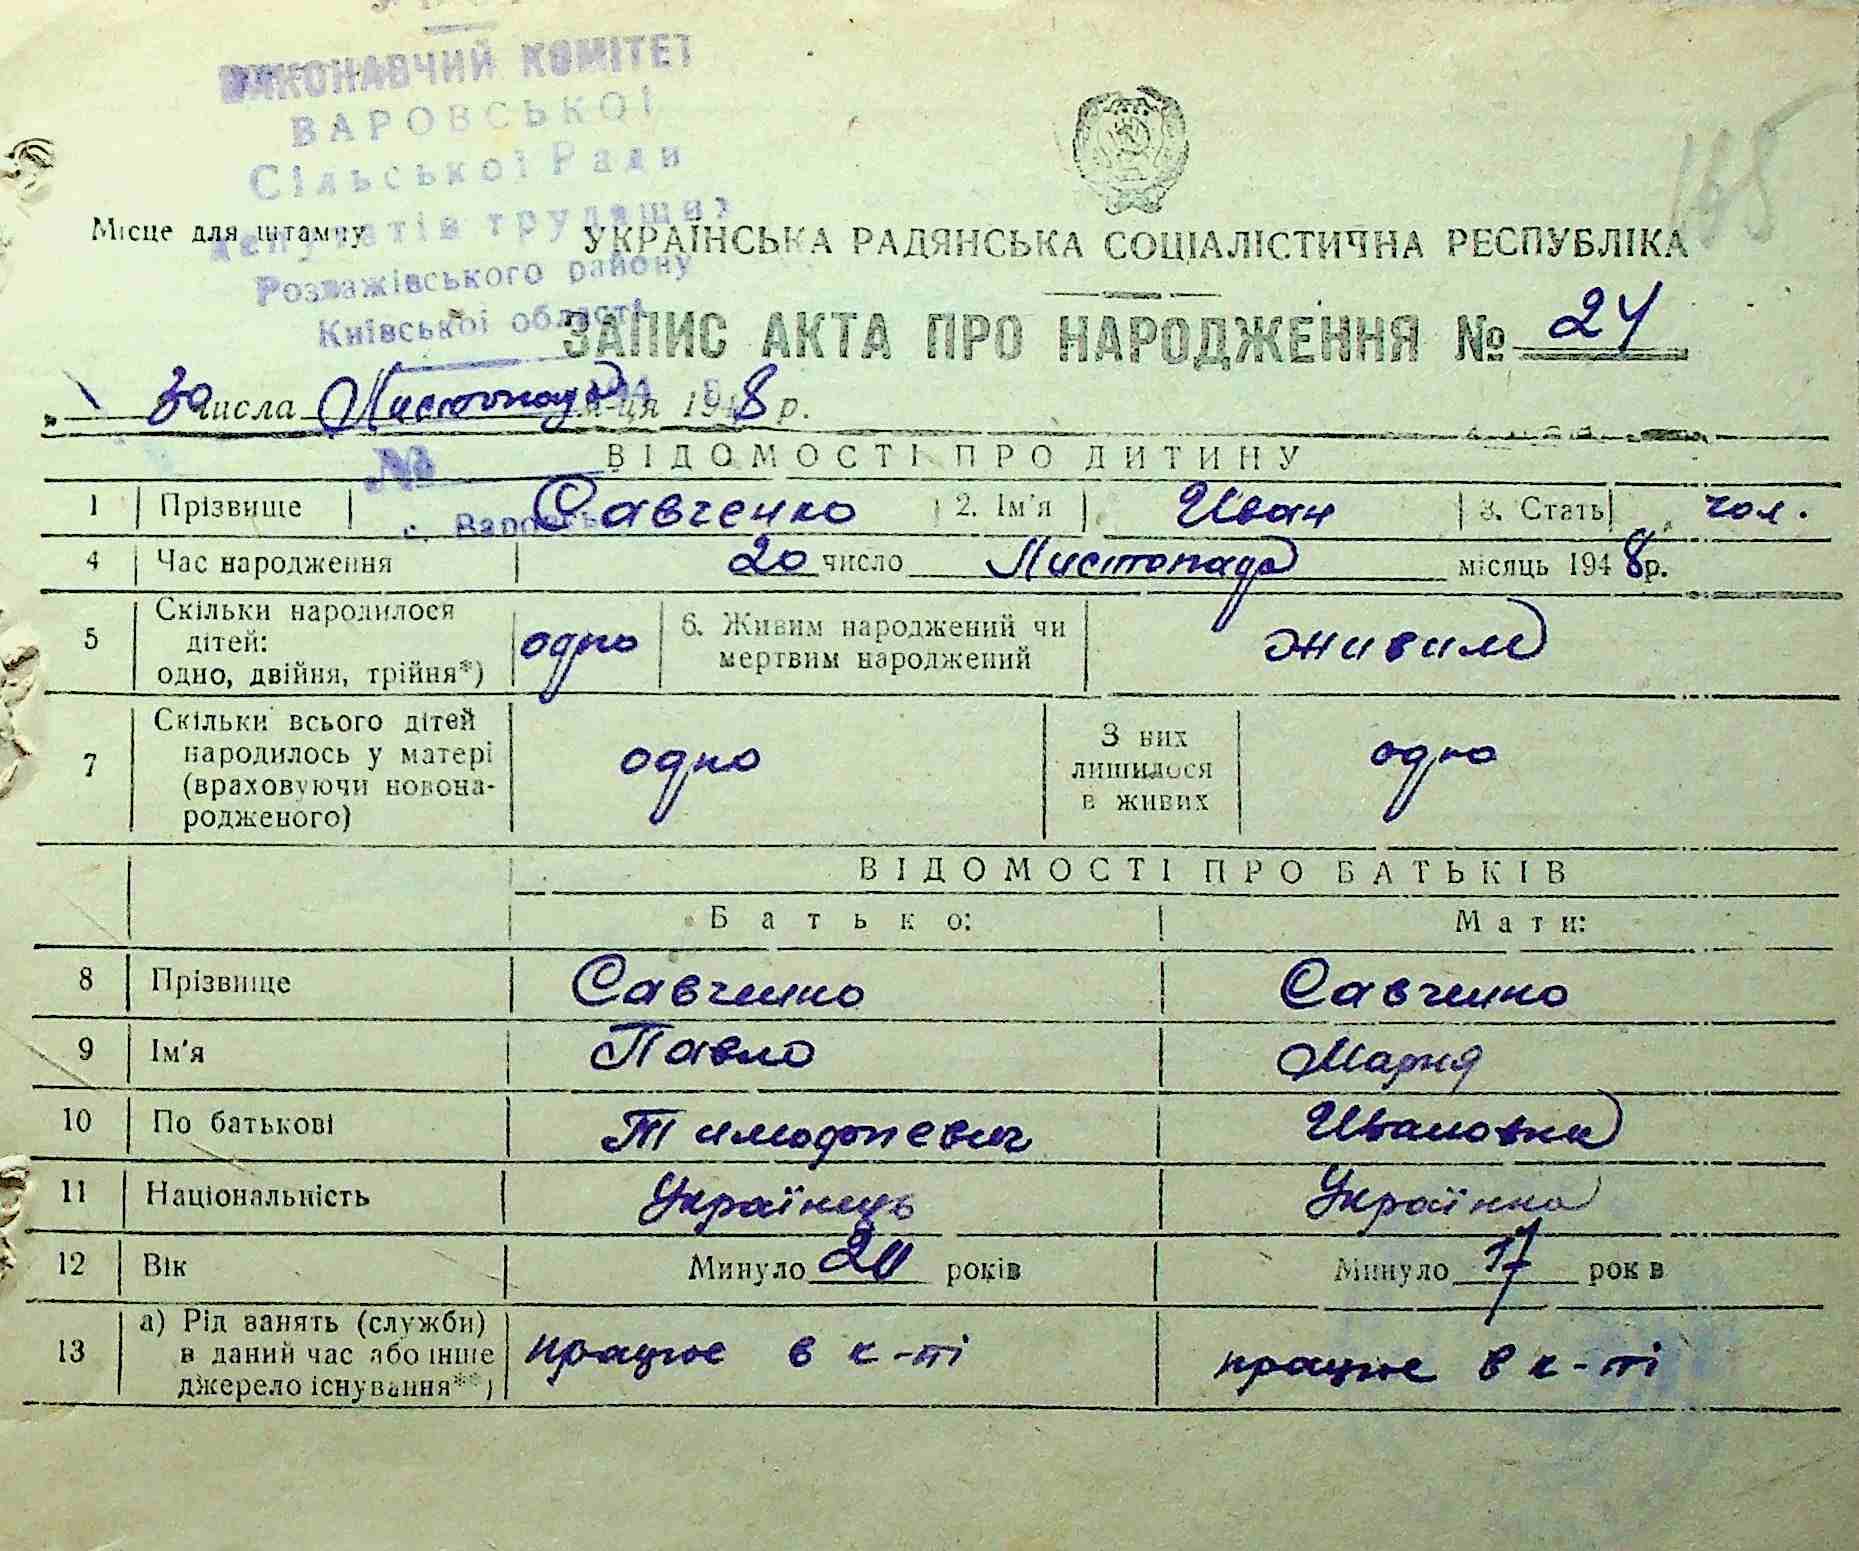 ВИКОНАВЧИЙ КОМІТЕТ
ВАРОВСЬКОЇ
Сільської Ради
депутатів трудящих
Розважівського району
Київської області
165
Місце для штампу
УКРАЇНСЬКА РАДЯНСЬКА СОЦІАЛІСТИЧНА РЕСПУБЛІКА
ЗАПИС АКТА ПРО НАРОДЖЕННЯ № 24
„ 30 числа Листопада м-ця 1948 р.
№
ВІДОМОСТІ ПРО ДИТИНУ
1 Прізвище Савченко 2. Ім'я Иван 3. Стать чол.
с. Варовськ
4 Час народження 20 число Листопада місяць 1948 р.
5 Скільки народилося дітей: одно, двійня, трійня*) одно 6. Живим народжений чи мертвим народжений живим
7 Скільки всього дітей народилось у матері (враховуючи новонародженого) одно З них лишилося в живих одно
ВІДОМОСТІ ПРО БАТЬКІВ
Батько: Мати:
8 Прізвище Савченко Савченко
9 Ім'я Павло Мария
10 По батькові Тимофпевич Ивановна
11 Національність Українець Українка
12 Вік Минуло 20 років Минуло 17 років
13 а) Рід занять (служби) в даний час або інше джерело існування**) працює в к-пі працює в к-пі